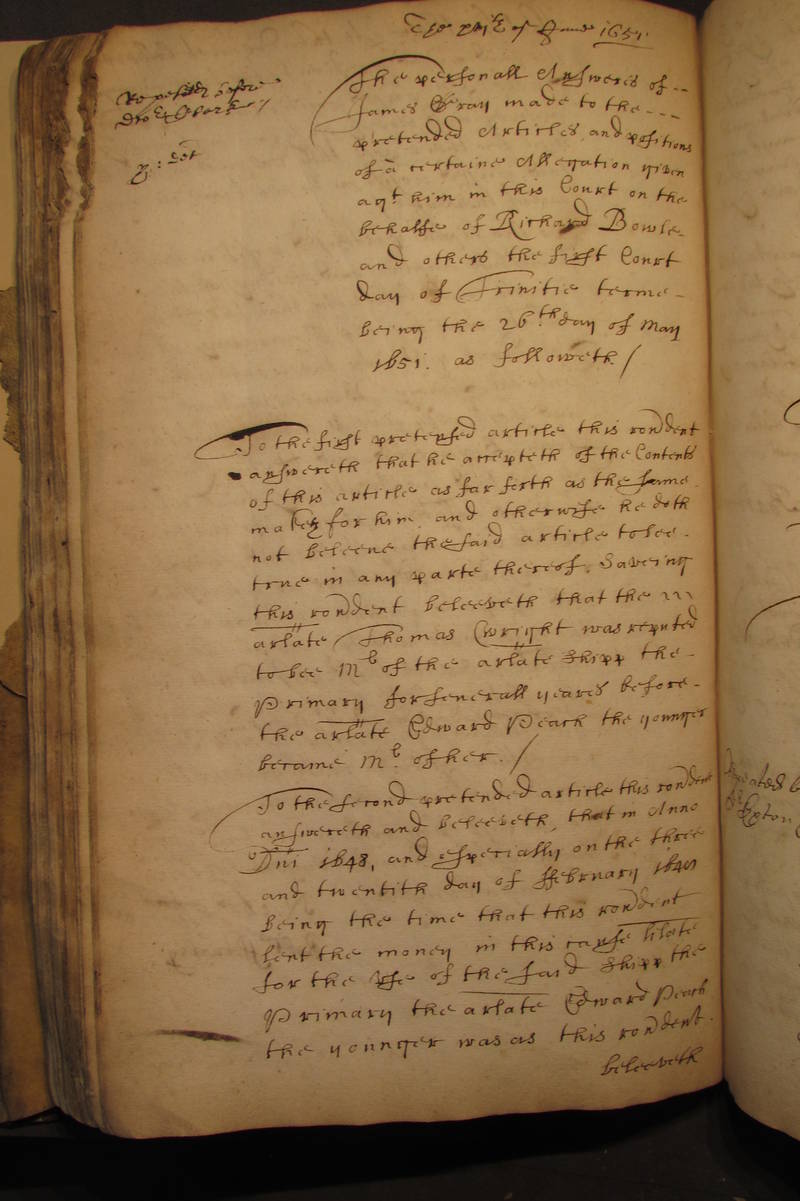 The xxjth of June 1651.
Repeated before
Doctr Clarke /
The personall Answeres of --
James Gray made to the ---
pretended Articles, and positions
of a certaine Allegation given
agt him in this Court on the
behalfe of Richard Bowle
and others the first Court
day of Trinitie terme -
being the 26th day of May
1651. as followeth /
To the first pretensed article this rondent
answereth that he accepteth of the Contents
of this article as far forth as the same
makes for him, and otherwise he doth
not beleeve the said article to bee -
true in any parte thereof. Saveing
this rondent beleeveth that the
arlate Thomas Wright was reputed
to bee Mr of the arlate shipp the -
Primary for severall yeares before -
the arlate Edward Peach the younger
became Mr. of her. /
To the second pretended article this rondent
answereth and beleeveth, that in Anno
Dni 1648, and especially on the three
and twentith day of ffebruary 1648
being the time that this rondent
lent the money in this cause lilate
for the use of the said shipp the
Primary the arlate Edward Peach
the younger was as this rondent.
beleeveth
Exton